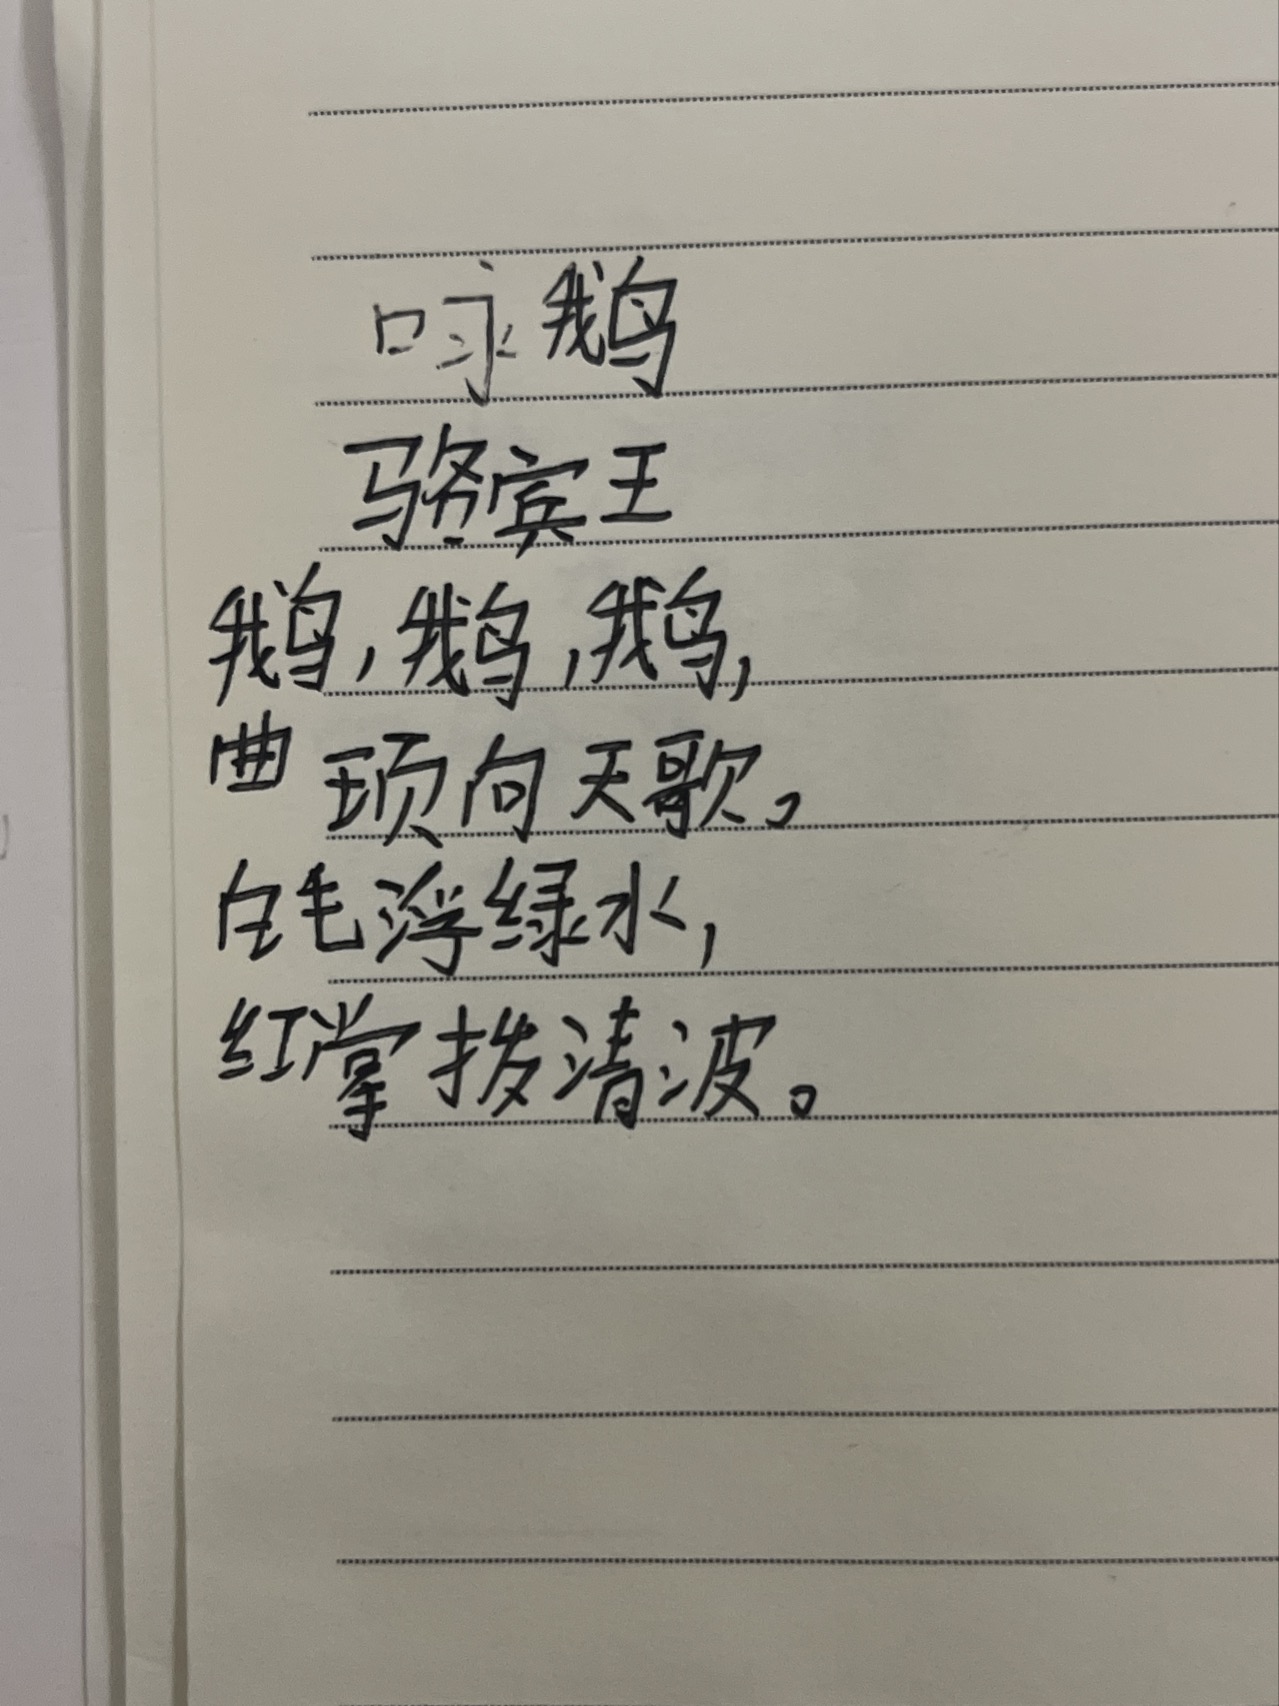 咏鹅
骆宾王
鹅,鹅,鹅,
曲项向天歌。
白毛浮绿水,
红掌拨清波。